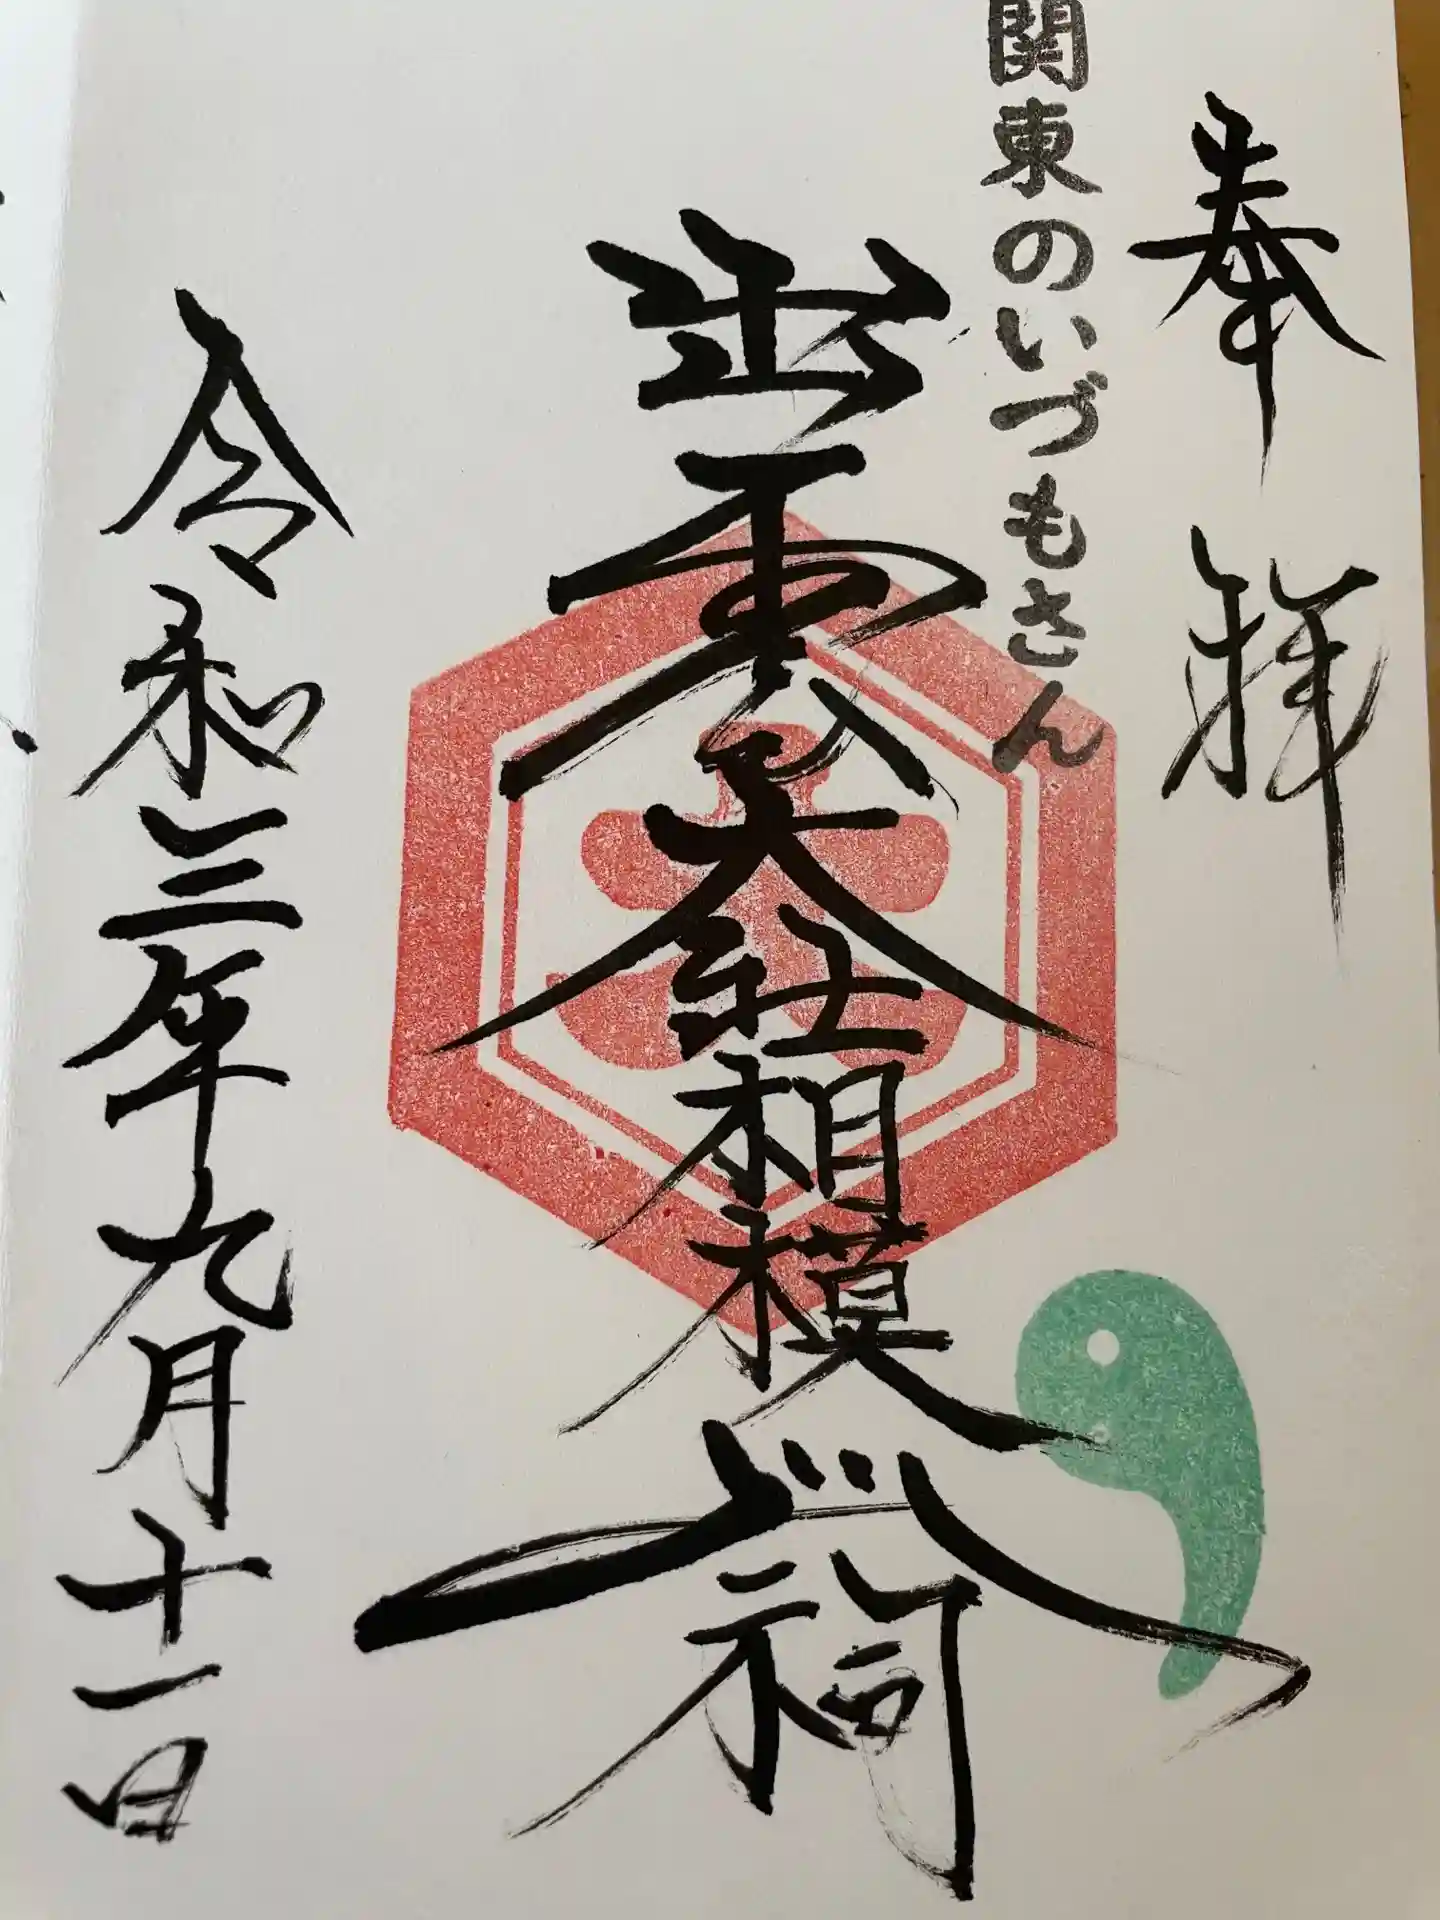 奉拝
関東のいづもさん
出雲大社相模分祠
令和三年九月十一日